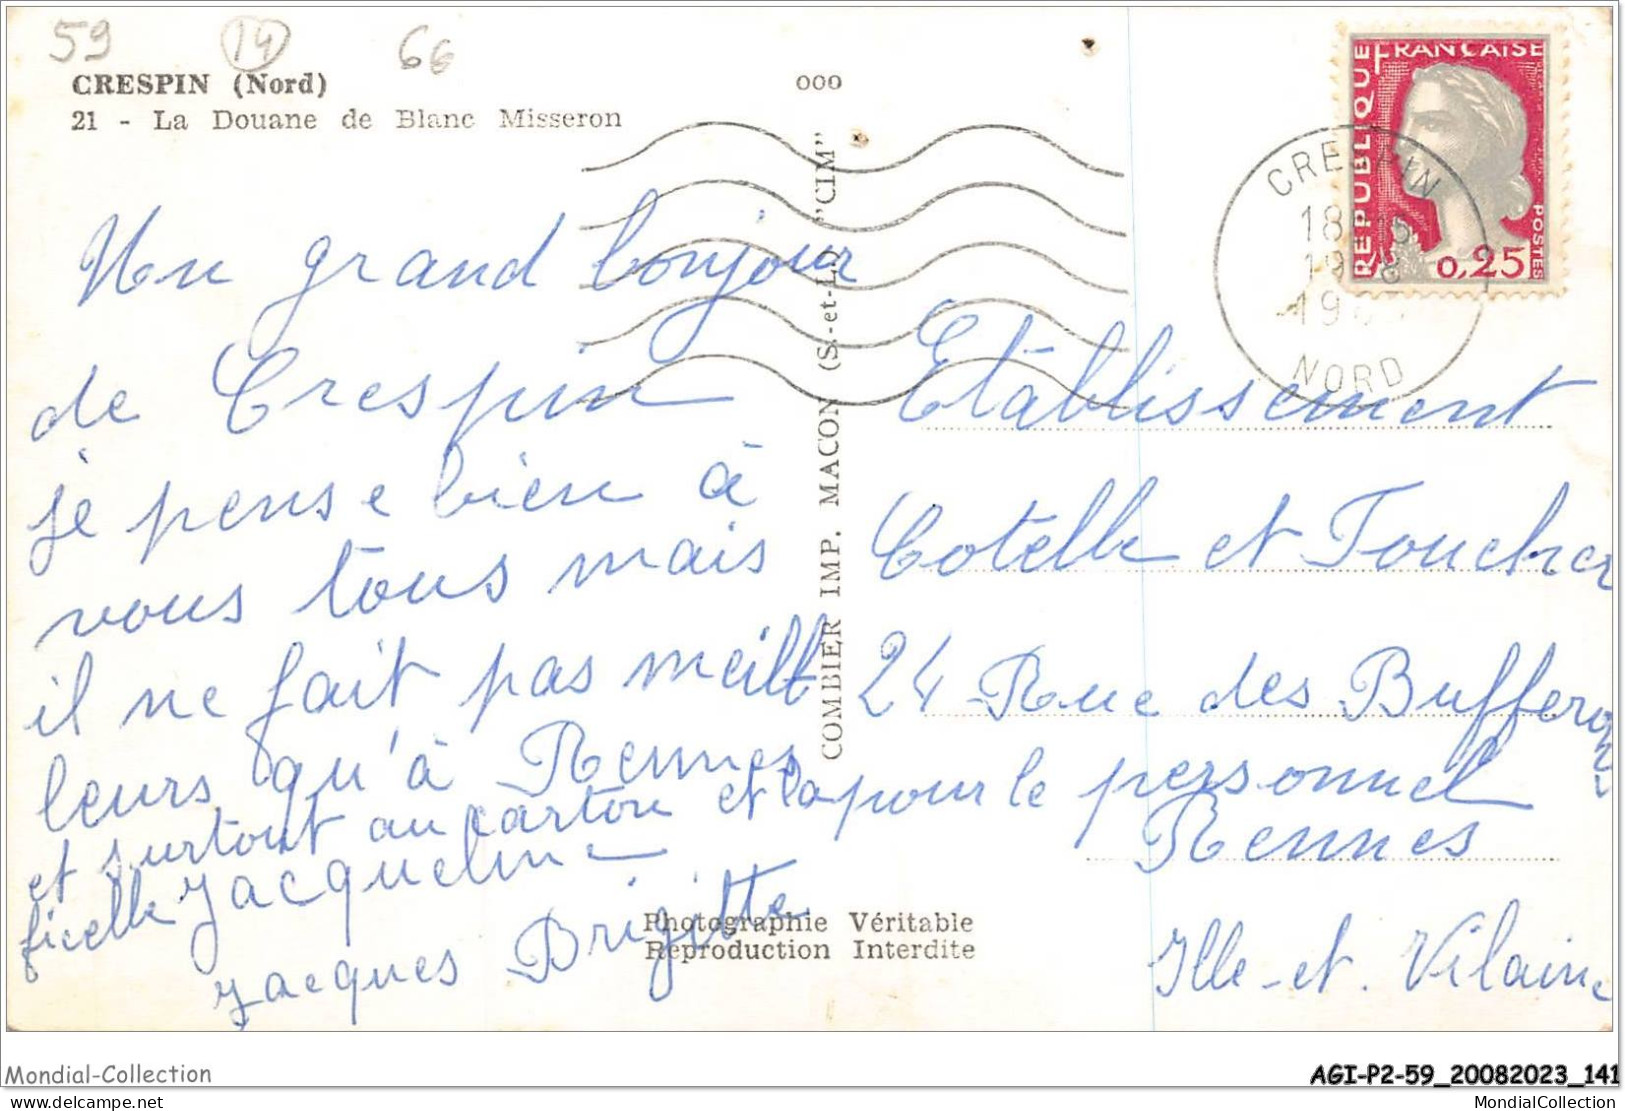 59 14 66
CRESPIN (Nord)
21 - La Douane de Blanc Misseron
000
Un grand bonjour
de Crespin
je pense bien à
vous tous mais
il ne fait pas meill
leurs qu'à Rennes
et surtout au carton et la
ficelle Jacqueline
Jacques Brigitte
COMBIER IMP. MACON (S.-et-L.) "CIM"
Photographie Véritable
Reproduction Interdite
REPUBLIQUE FRANÇAISE
POSTES
0,25
CRESPIN
18
19
NORD
Etablissement
Cotelle et Foucher
24 Rue des
pour le personnel
Rennes
Ille-et-Vilaine
Mondial-Collection
AGI-P2-59_20082023_141
delcampe.net
MondialCollection